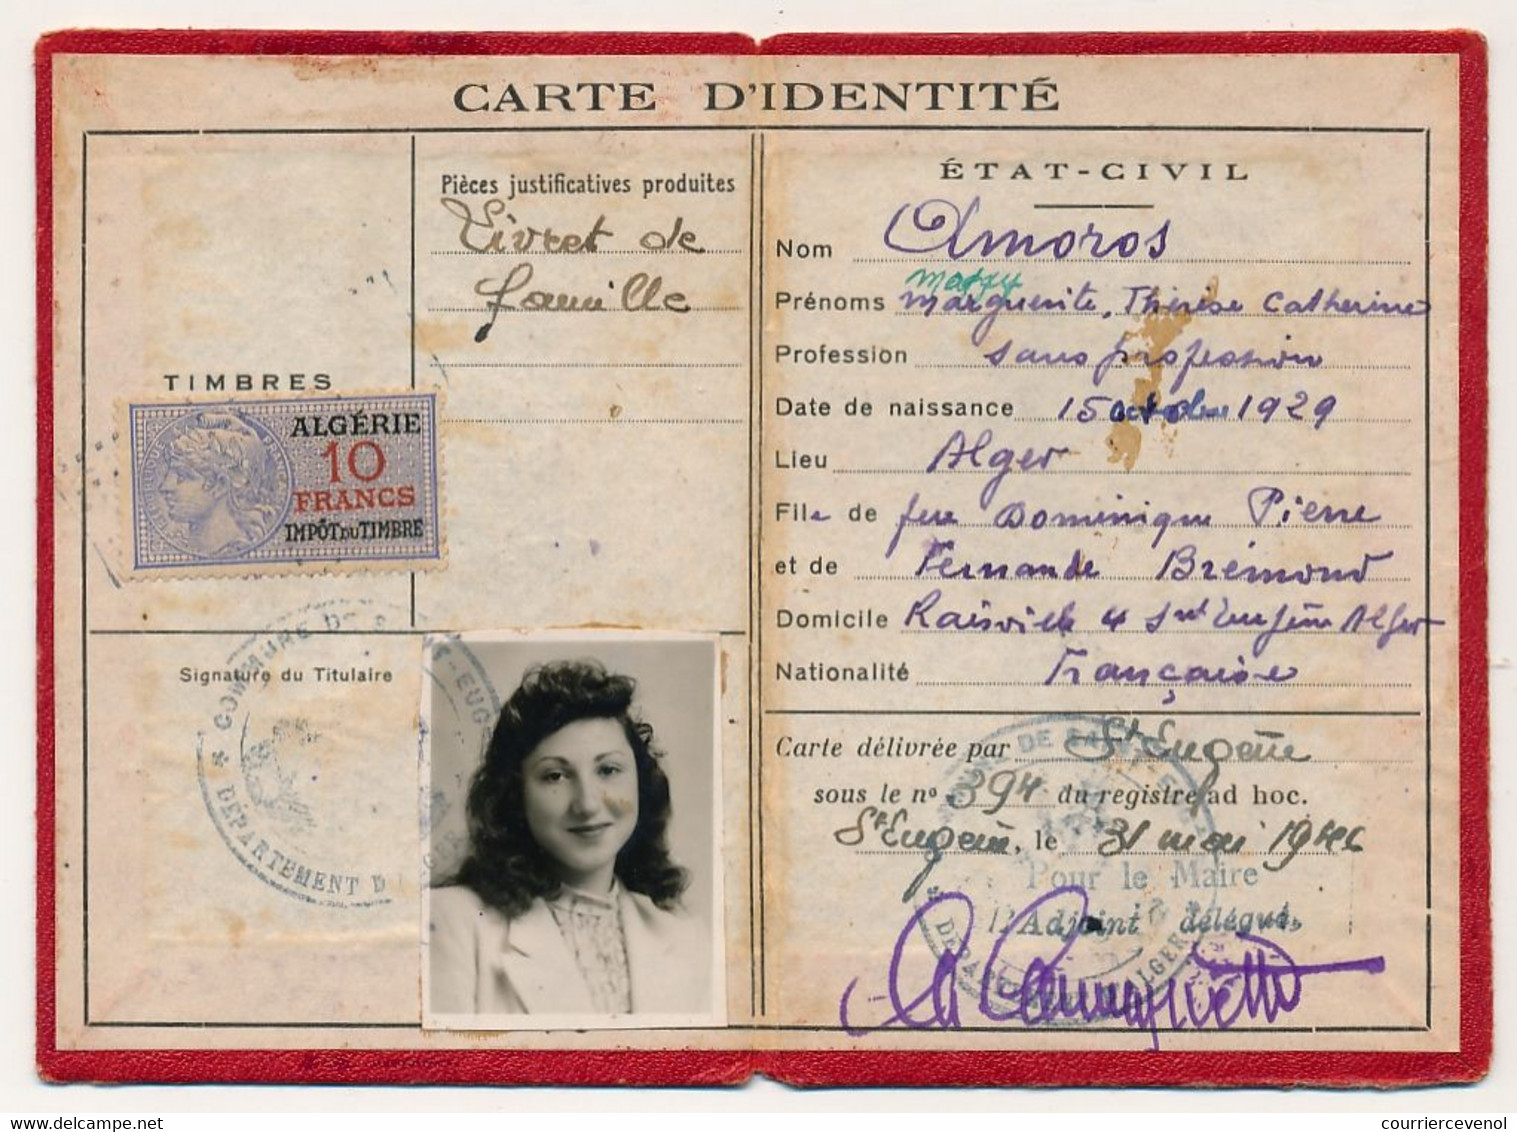 CARTE D'IDENTITÉ
Pièces justificatives produites
Livret de
famille
TIMBRES
ALGÉRIE
10
FRANCS
IMPÔT DU TIMBRE
Signature du Titulaire
COMMUNE DE SAINT-EUG
DÉPARTEMENT D'ALGER
ÉTAT-CIVIL
Nom Amoros
Marguerite, Thérèse Catherine
Prénoms
Profession sans profession
Date de naissance 15 octobre 1929
Lieu Alger
File de feu Dominique Pierre
et de Fernande Brémond
Domicile 4 St Eugène Alger
Nationalité Française
Carte délivrée par St Eugène
sous le nº 394 du registre ad hoc.
St Eugène, le 31 mai 1946
Pour le Maire
L'Adjoint délégué,
DÉPARTEMENT D'ALGER
courriercevenol